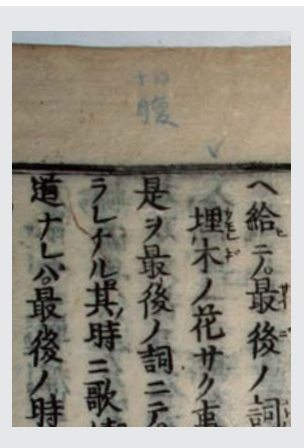 切腹
ヘ給ニテ。最後ノ詞
埋木ノ花サク事
是ヲ最後ノ詞ニテ
ラレケル其時ニ歌
道ナレバ。最後ノ時